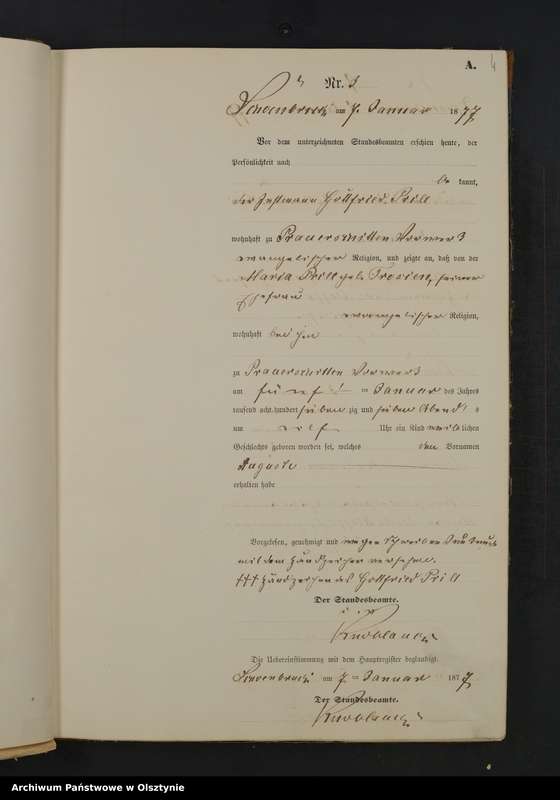 A.
4
Nr. 3
am 7. Januar 1877
Vor dem unterzeichneten Standesbeamten erschien heute, der
Persönlichkeit nach
be kannt,
der Instmann Gottfried Prill
wohnhaft zu Vorwerk
evangelischer Religion, und zeigte an, daß von der
Maria Prill geb. Trosien, seiner
Ehefrau
evangelischer Religion,
wohnhaft bei ihm
zu Vorwerk
am fünf ten Januar des Jahres
tausend acht hundert sieben zig und sieben Abends
um elf Uhr ein Kind weiblichen
Geschlechts geboren worden sei, welches den Vornamen
Auguste
erhalten habe
Vorgelesen, genehmigt und wegen
mit dem Handzeichen versehen.
+++ Handzeichen des Gottfried Prill
Der Standesbeamte.
Die Uebereinstimmung mit dem Hauptregister beglaubigt.
am 7 ten Januar 1877
Der Standesbeamte.
Archiwum Państwowe w Olsztynie